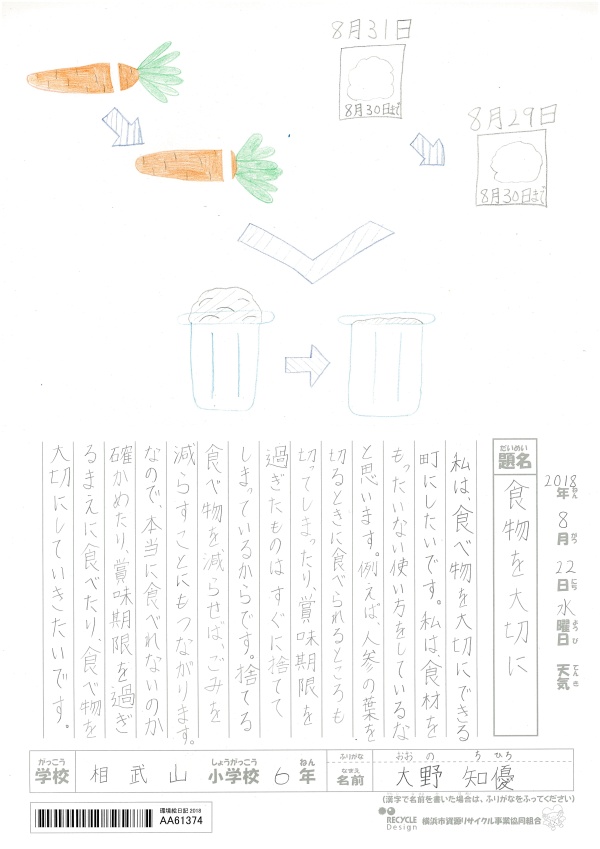 8月31日
8月30日まで
8月29日
8月30日まで
2018年ねん8月がつ22日にち水曜日ようび天気てんき
だいめい
題名
食物を大切に
私は、食べ物を大切にできる
町にしたいです。私は、食材を
もったいない使い方をしているな
と思います。例えば、人参の葉を
切るときに食べられるところも
切ってしまったり、賞味期限を
過ぎたものはすぐに捨てて
しまっているからです。捨てる
食べ物を減らせば、ごみを
減らすことにもつながります。
なので、本当に食べれないのか
確かめたり、賞味期限を過ぎ
るまえに食べたり、食べ物を
大切にしていきたいです。
がっこう しょうがっこう ねん ふりがな おおの ちひろ
学校 相武山 小学校 6年 なまえ 名前 大野 知優
(漢字で名前を書いた場合は、ふりがなをふってください)
環境絵日記 2018
AA61374
RECYCLE Design 横浜市資源リサイクル事業協同組合